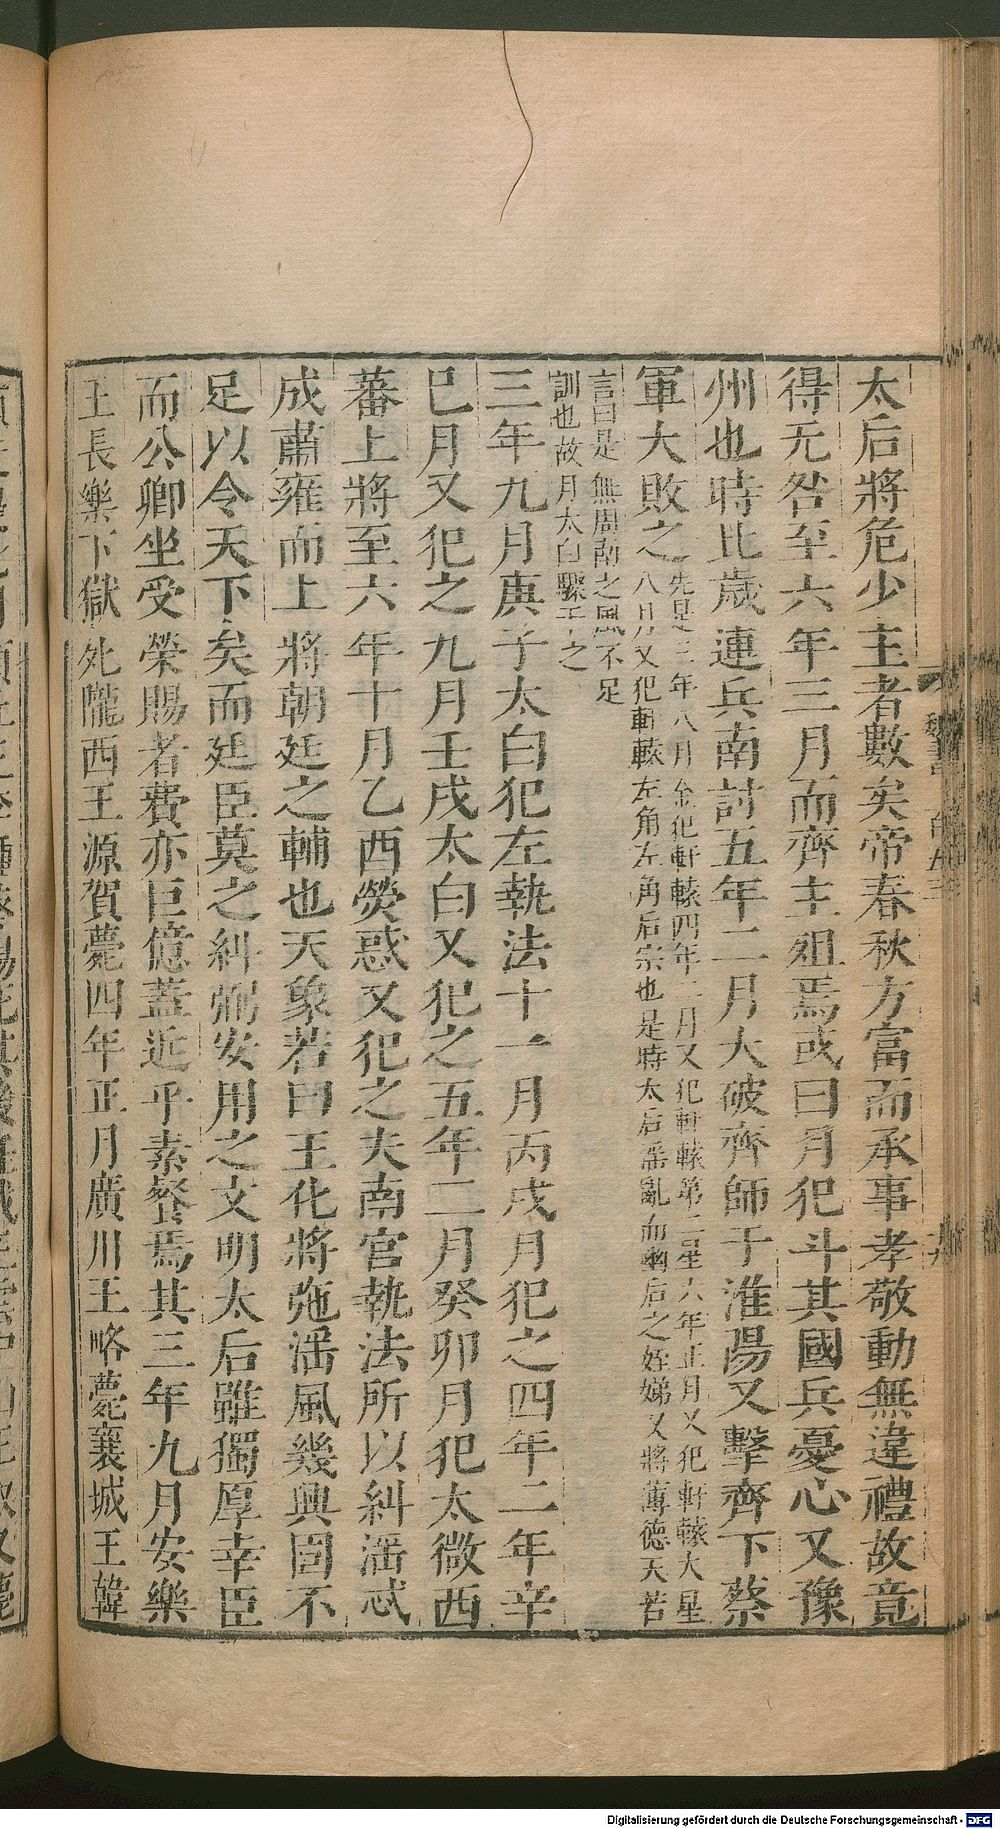 太后將危少主者數矣帝春秋方富而承事孝敬動無違禮故竟
得无咎至六年三月而齊主殂焉或曰月犯斗其國兵憂心又豫
州也時比歲連兵南討五年二月大破齊師于淮陽又擊齊下蔡
軍大敗之
先是三年八月金犯軒轅四年二月又犯軒轅第二星六年正月又犯軒轅大星
八月又犯軒轅左角左角后宗也是時太后淫亂而幽后之姪娣又將薄德天若
言曰是無周南之風不足
訓也故月太白驟干之
三年九月庚子太白犯左執法十一月丙戌月犯之四年二年辛
巳月又犯之九月壬戌太白又犯之五年二月癸卯月犯太微西
蕃上將至六年十月乙酉熒惑又犯之夫南宮執法所以糾淫忒
成肅雍而上將朝廷之輔也天象若曰王化將弛淫風幾興固不
足以令天下矣而廷臣莫之糾弼安用之文明太后雖獨厚幸臣
而公卿坐受榮賜者費亦巨億蓋近乎素餐焉其三年九月安樂
王長樂下獄死隴西王源賀薨四年正月廣川王略薨襄城王韓
魏書 一百五三
Digitalisierung gefördert durch die Deutsche Forschungsgemeinschaft - DFG